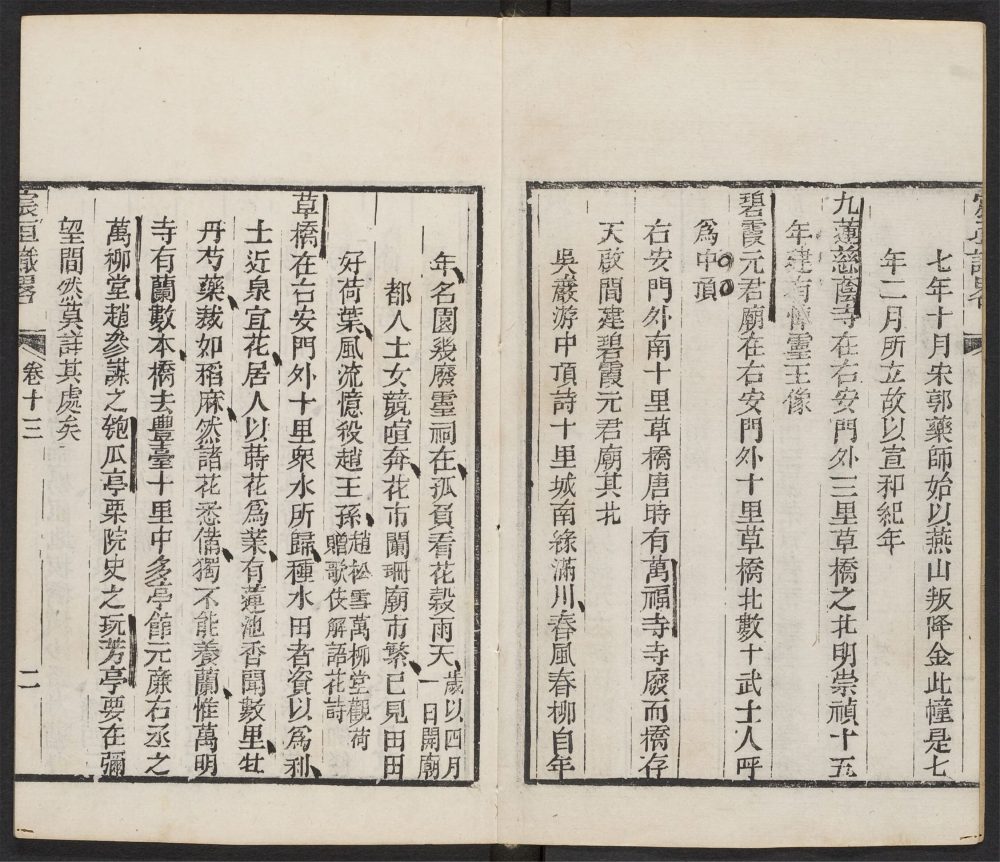 七年十月宋郭藥師始以燕山叛降金此幢是七
年二月所立故以宣和紀年
九蓮慈蔭寺在右安門外三里草橋之北明崇禎十五
年建有懷靈王像
碧霞元君廟在右安門外十里草橋北數十武士人呼
為中頂
右安門外南十里草橋唐時有萬福寺寺廢而橋存
天啟間建碧霞元君廟其北
吳巖游中頂詩十里城南綠滿川春風春柳自年
年名園幾廢靈祠在孤負看花穀雨天歲以四月
一日開廟
都人士女競喧奔花市闌珊廟市繁已見田田
好荷葉風流憶殺趙王孫趙松雪萬柳堂觀荷
贈歌伎解語花詩
草橋在右安門外十里眾水所歸種水田者資以為利
土近泉宜花居人以蒔花為業有蓮池香聞數里牡
丹芍藥栽如稻麻然諸花悉備獨不能養蘭惟萬明
寺有蘭數本橋去豐臺十里中多亭館元廉右丞之
萬柳堂趙參謀之匏瓜亭栗院史之玩芳亭要在彌
望間然莫詳其處矣
宸垣識畧
卷十三
二